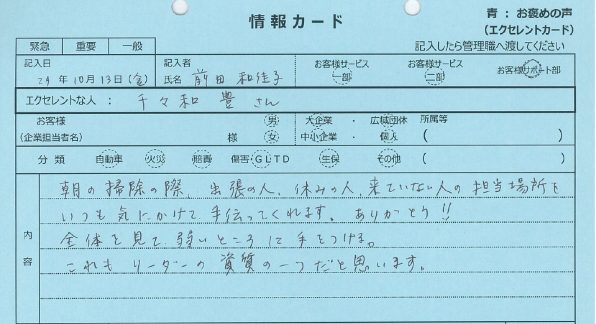 情報カード
青：お褒めの声
（エクセレントカード）
緊急 重要 一般
記入したら管理職へ渡してください
記入日
29年10月13日(金)
記入者
氏名 前田 和佳子
お客様サービス一部
お客様サービス二部
お客様サポート部
エクセレントな人： 千々和 豊さん
お客様
(企業担当者名) 様
男
女
大企業・広域団体
中小企業・個人
所属等
( )
( )
分類 自動車 火災 賠責 傷害・GLTD 生保 その他 ( )
内容
朝の掃除の際、出張の人、休みの人、来ていない人の担当場所を
いつも気にかけて手伝ってくれます。ありがとう!!
全体を見て、弱いところに手をつける。
これもリーダーの資質の一つだと思います。